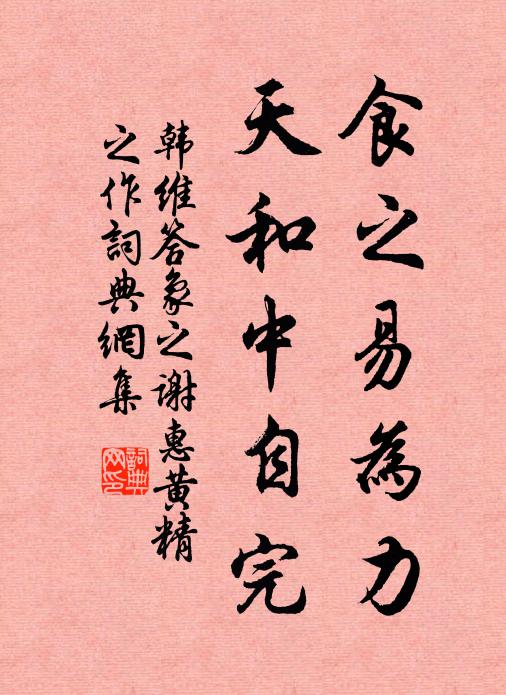 食之易為力
天和中自完
韩维答象之谢惠黄精
之作詞典網集
詞典網印